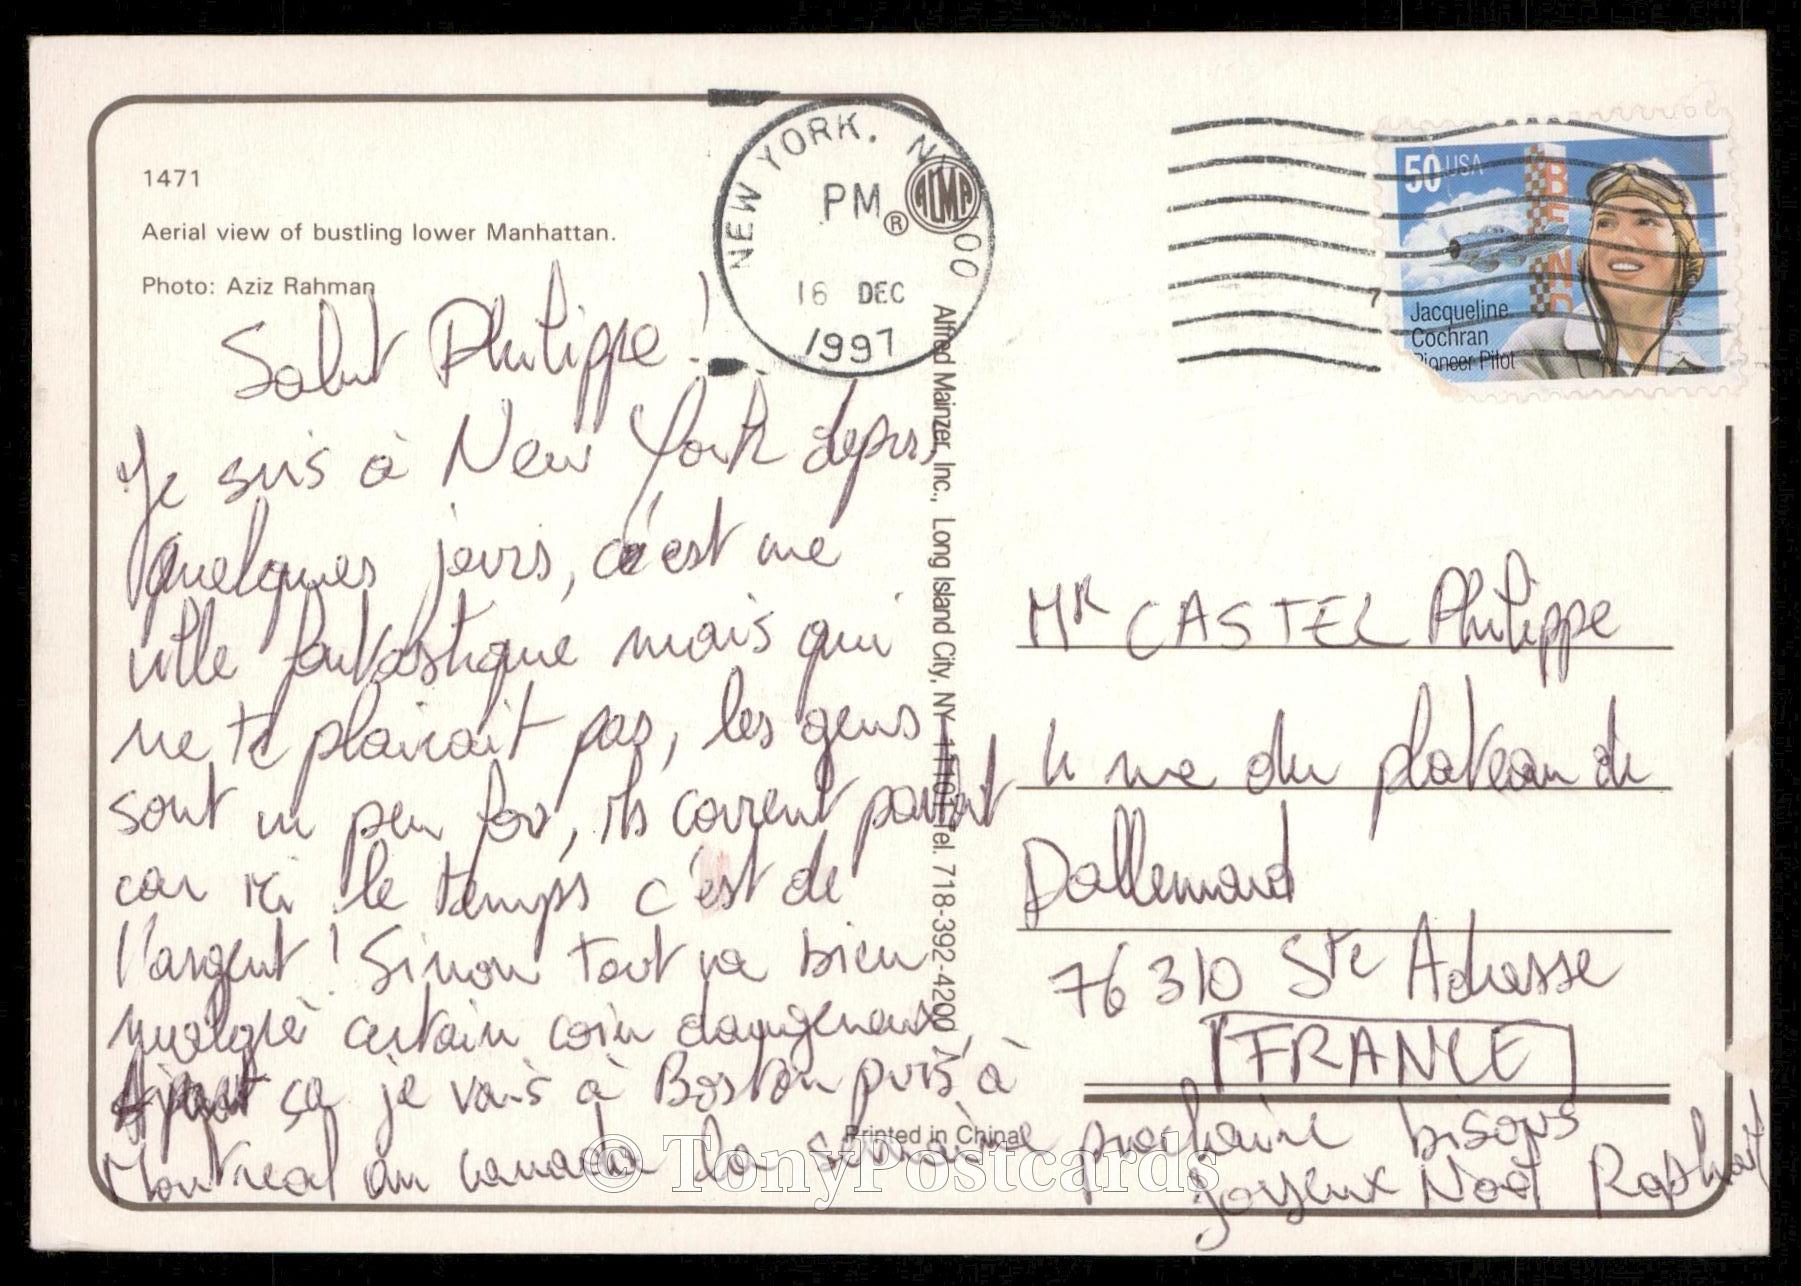 1471
Aerial view of bustling lower Manhattan.
Photo: Aziz Rahman
NEW YORK, N 00
PM
16 DEC
1997
®
ALMA
50 USA
BEND
Jacqueline
Cochran
Pioneer Pilot
7
Salut Philippe!
Je suis à New York depuis
quelques jours, c'est une
ville fantastique mais qui
ne te plairait pas, les gens
sont un peu fous, ils courent partout
car ici le temps c'est de
l'argent! Sinon tout va bien
malgré certain coin dangereux,
ça je vais à Boston puis à
Montreal au canada la semaine prochaine bisous
Joyeux Noël
Alfred Mainzer, Inc., Long Island City, NY 11101 Tel. 718-392-4200
Mr CASTEL Philippe
rue du plateau du
Dallemard
76310 Ste Adresse
FRANCE
Printed in China
© TonyPostcards